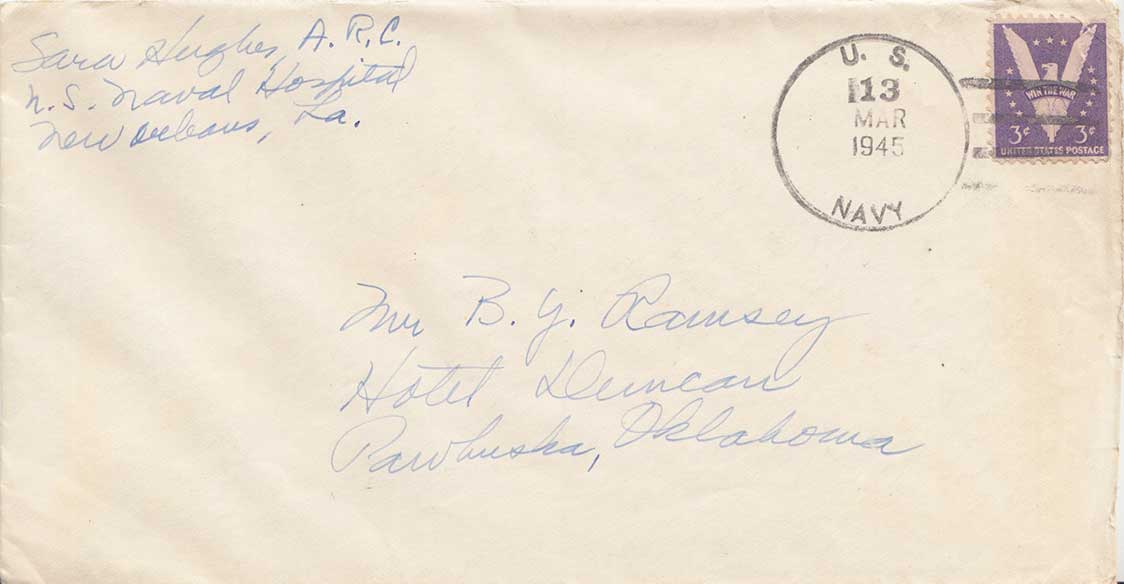 Sara Hughes, A.R.C.
U.S. Naval Hospital
New Orleans, La.
U. S.
13
MAR
1945
NAVY
WIN THE WAR
3¢ 3¢
UNITED STATES POSTAGE
Mr B. Y. Ramsey
Hotel Duncan
Pawhuska, Oklahoma